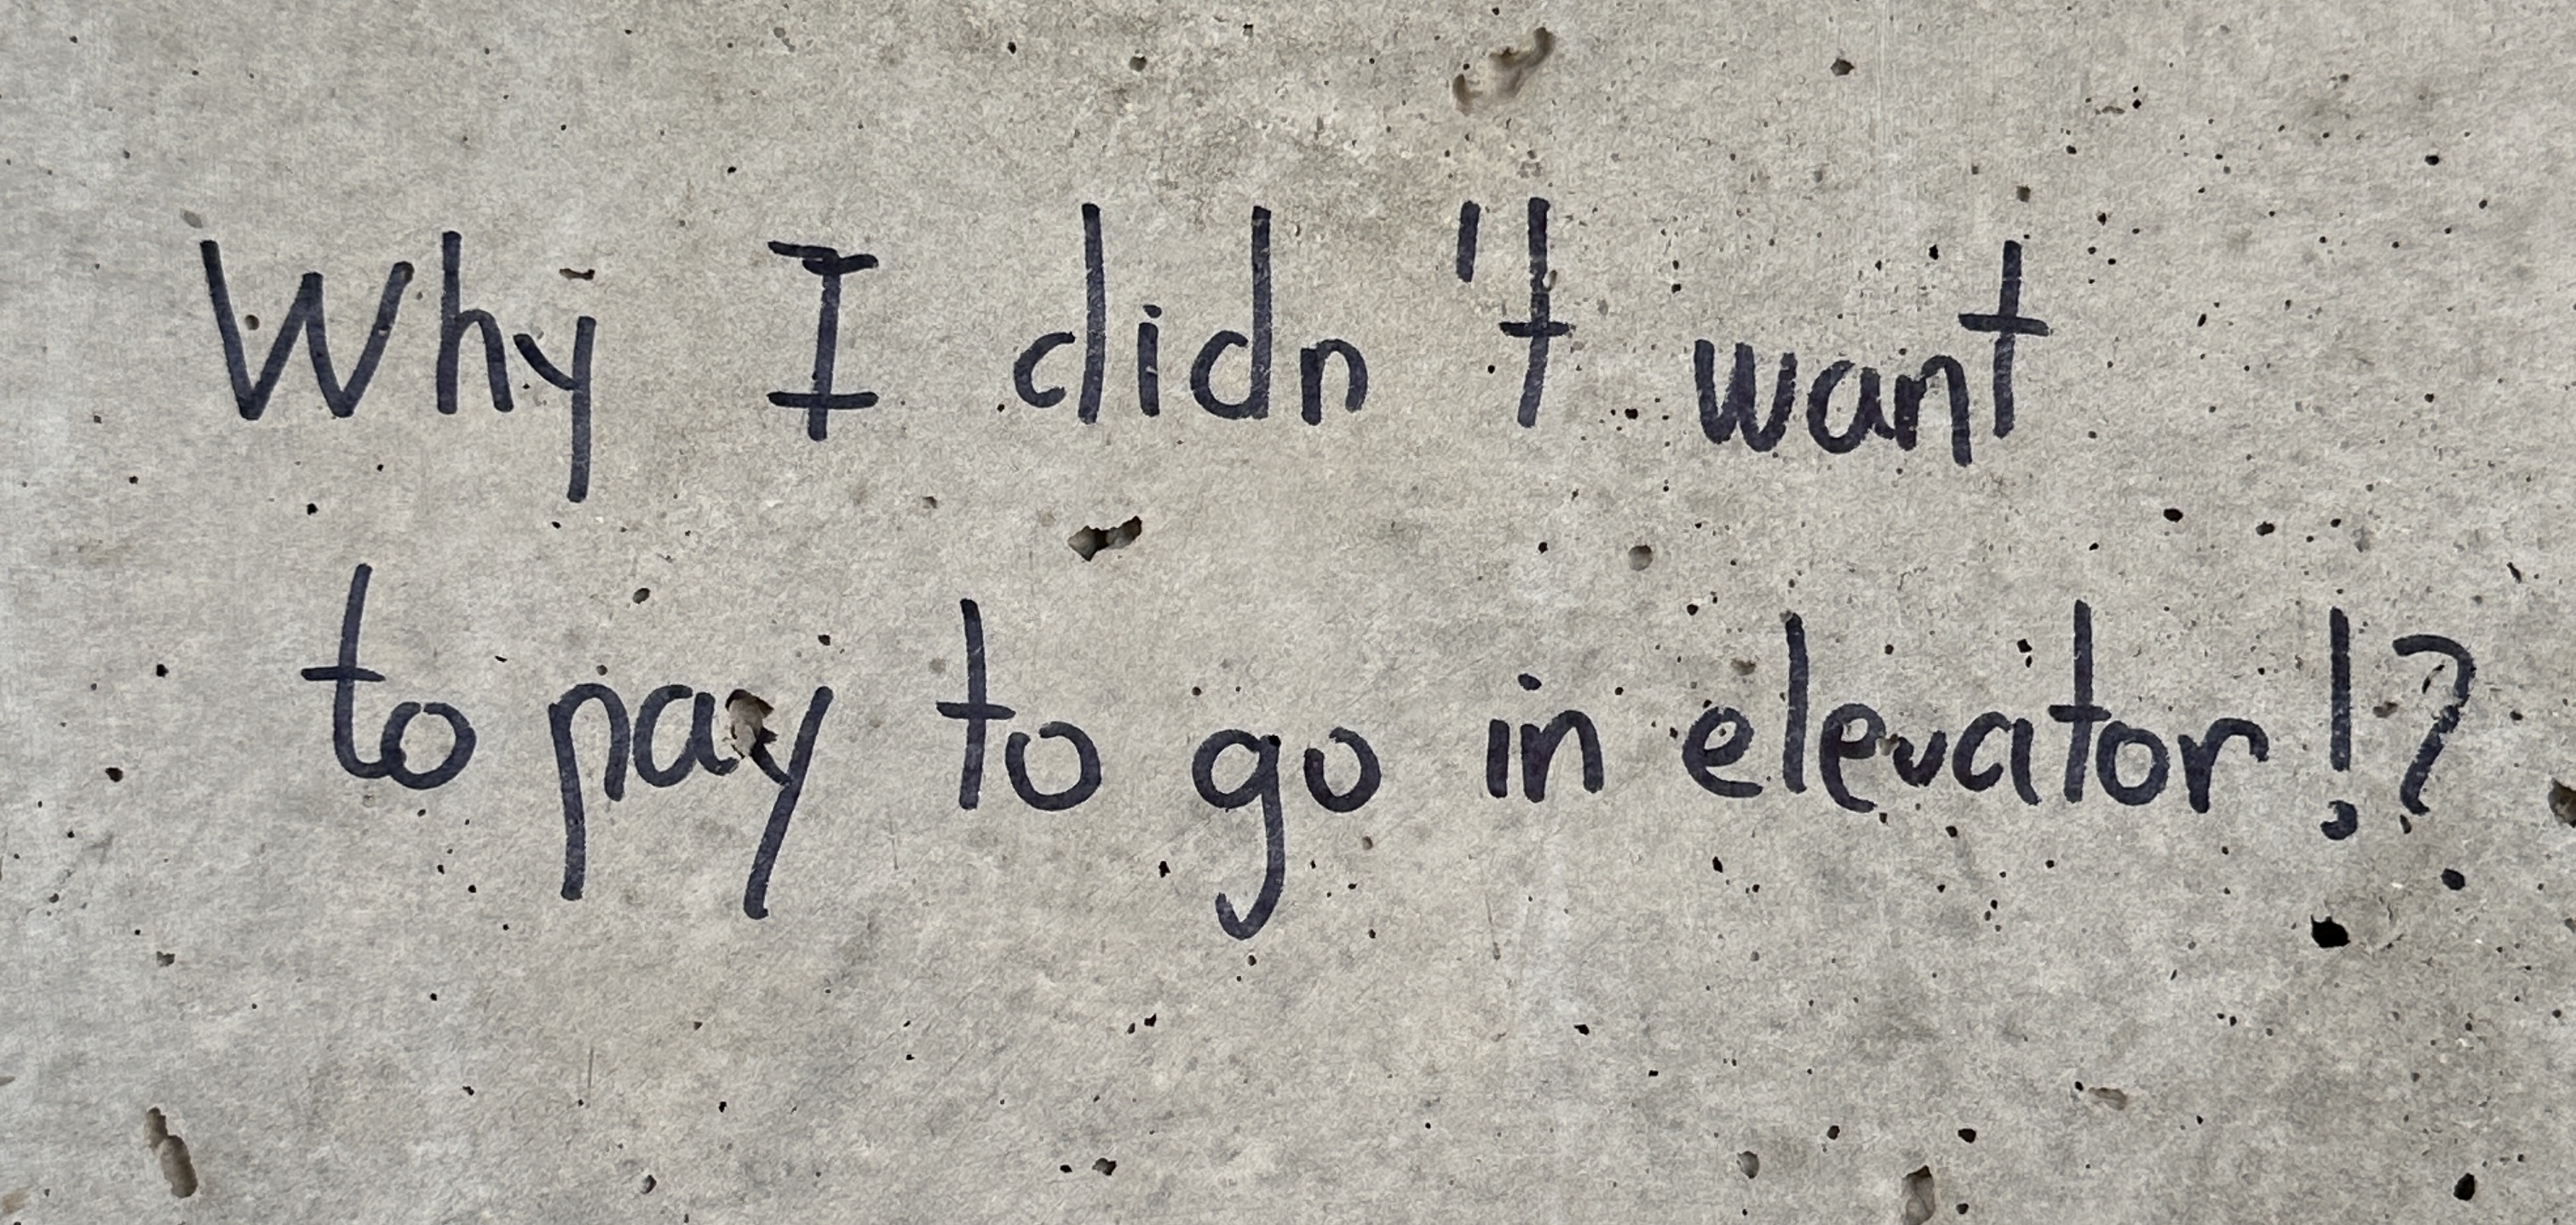 Why I didn't want
to pay to go in elevator!?